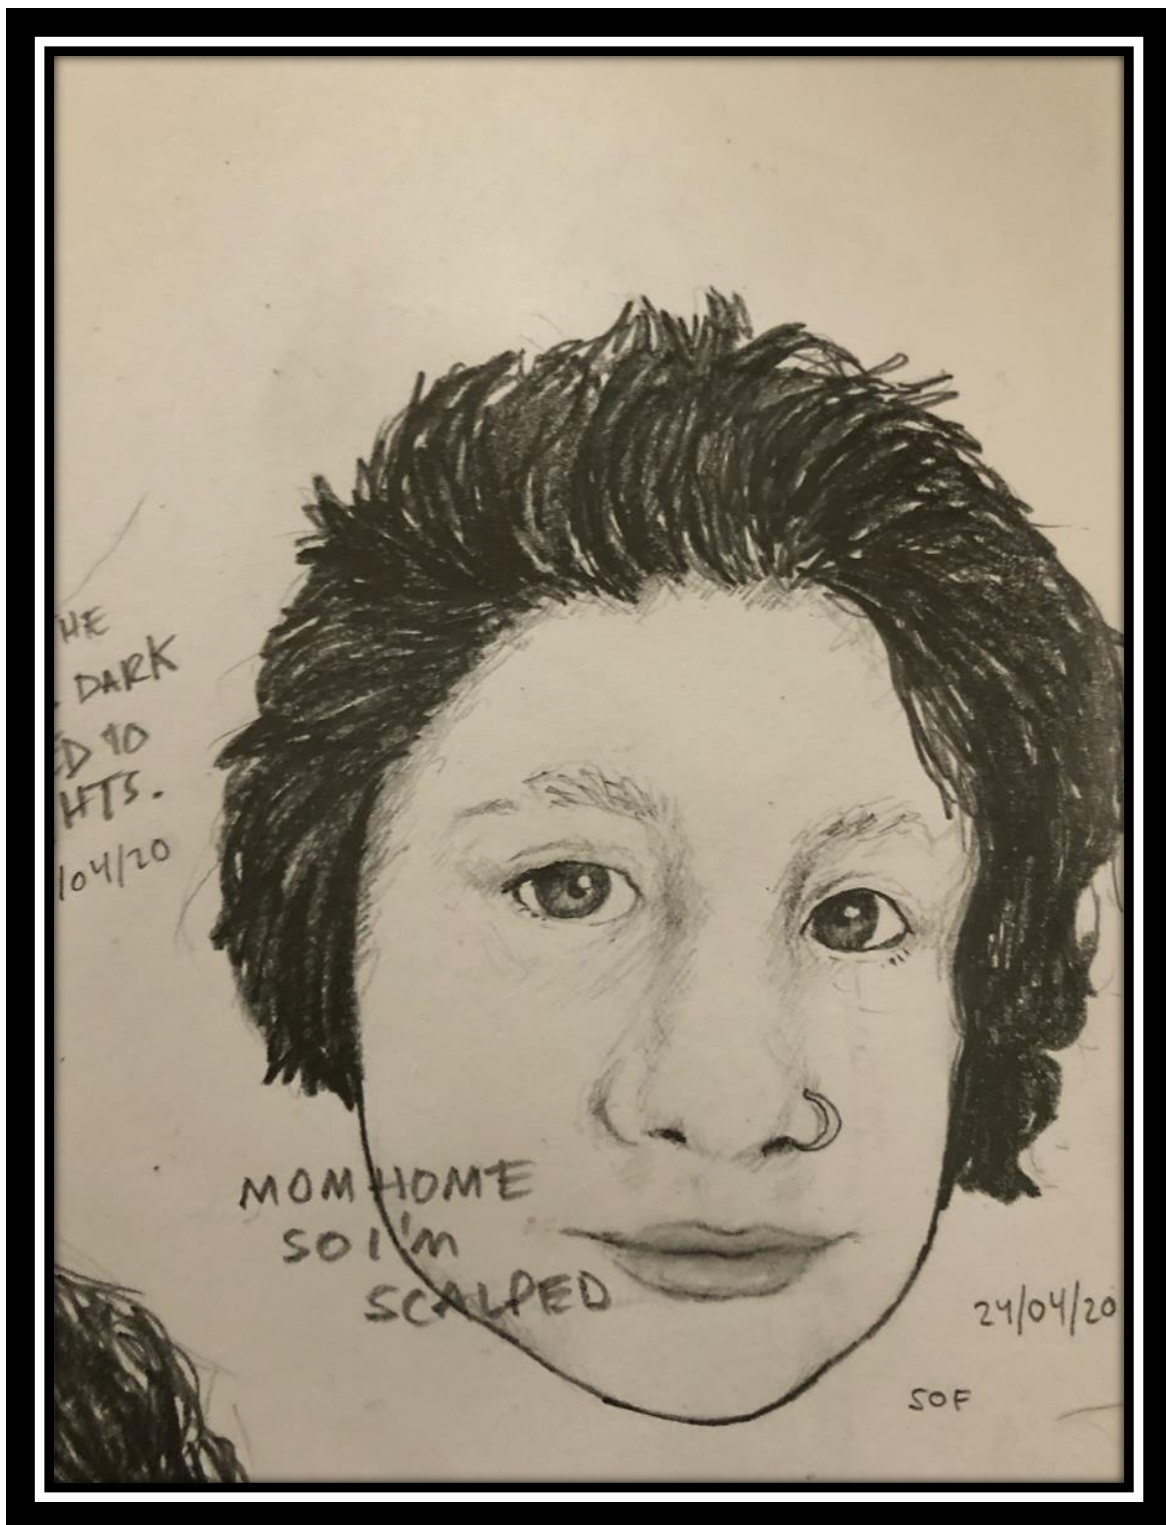 DARK
TO
/04/20
MOM HOME
SO I'M
SCALPED
24/04/20
SOF